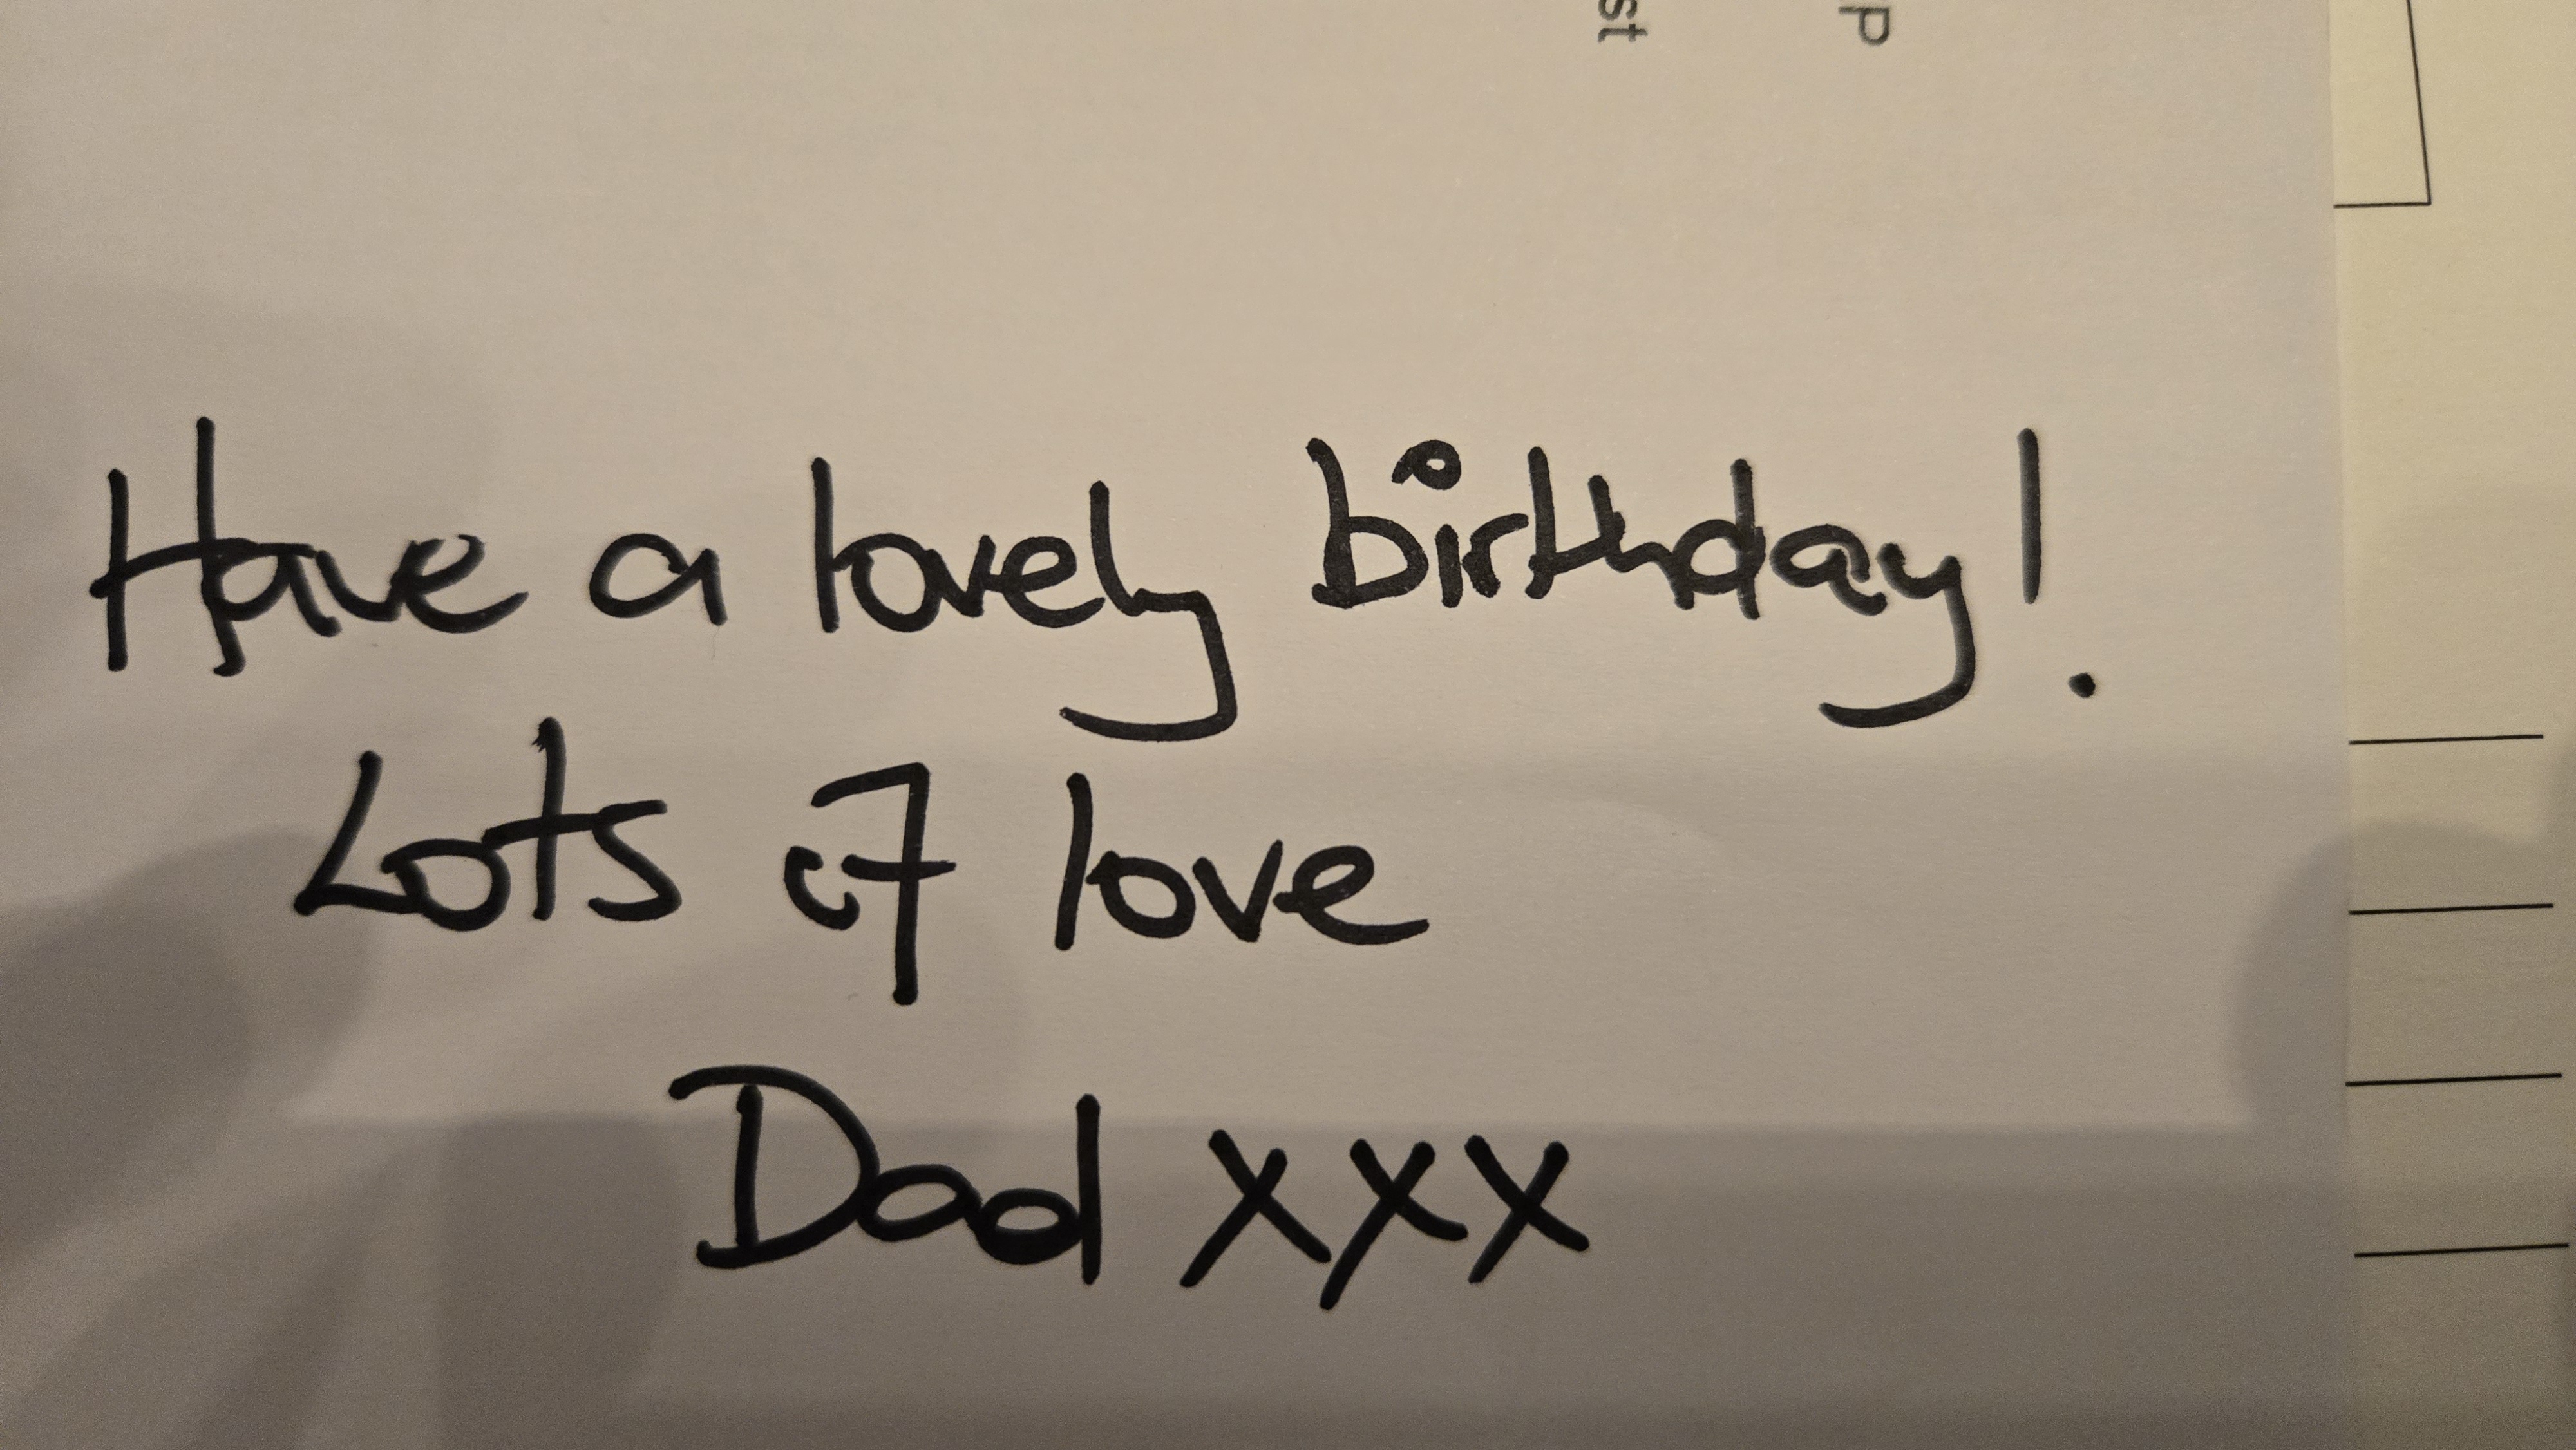 st
P
Have a lovely birthday!
Lots of love
Dad xxx